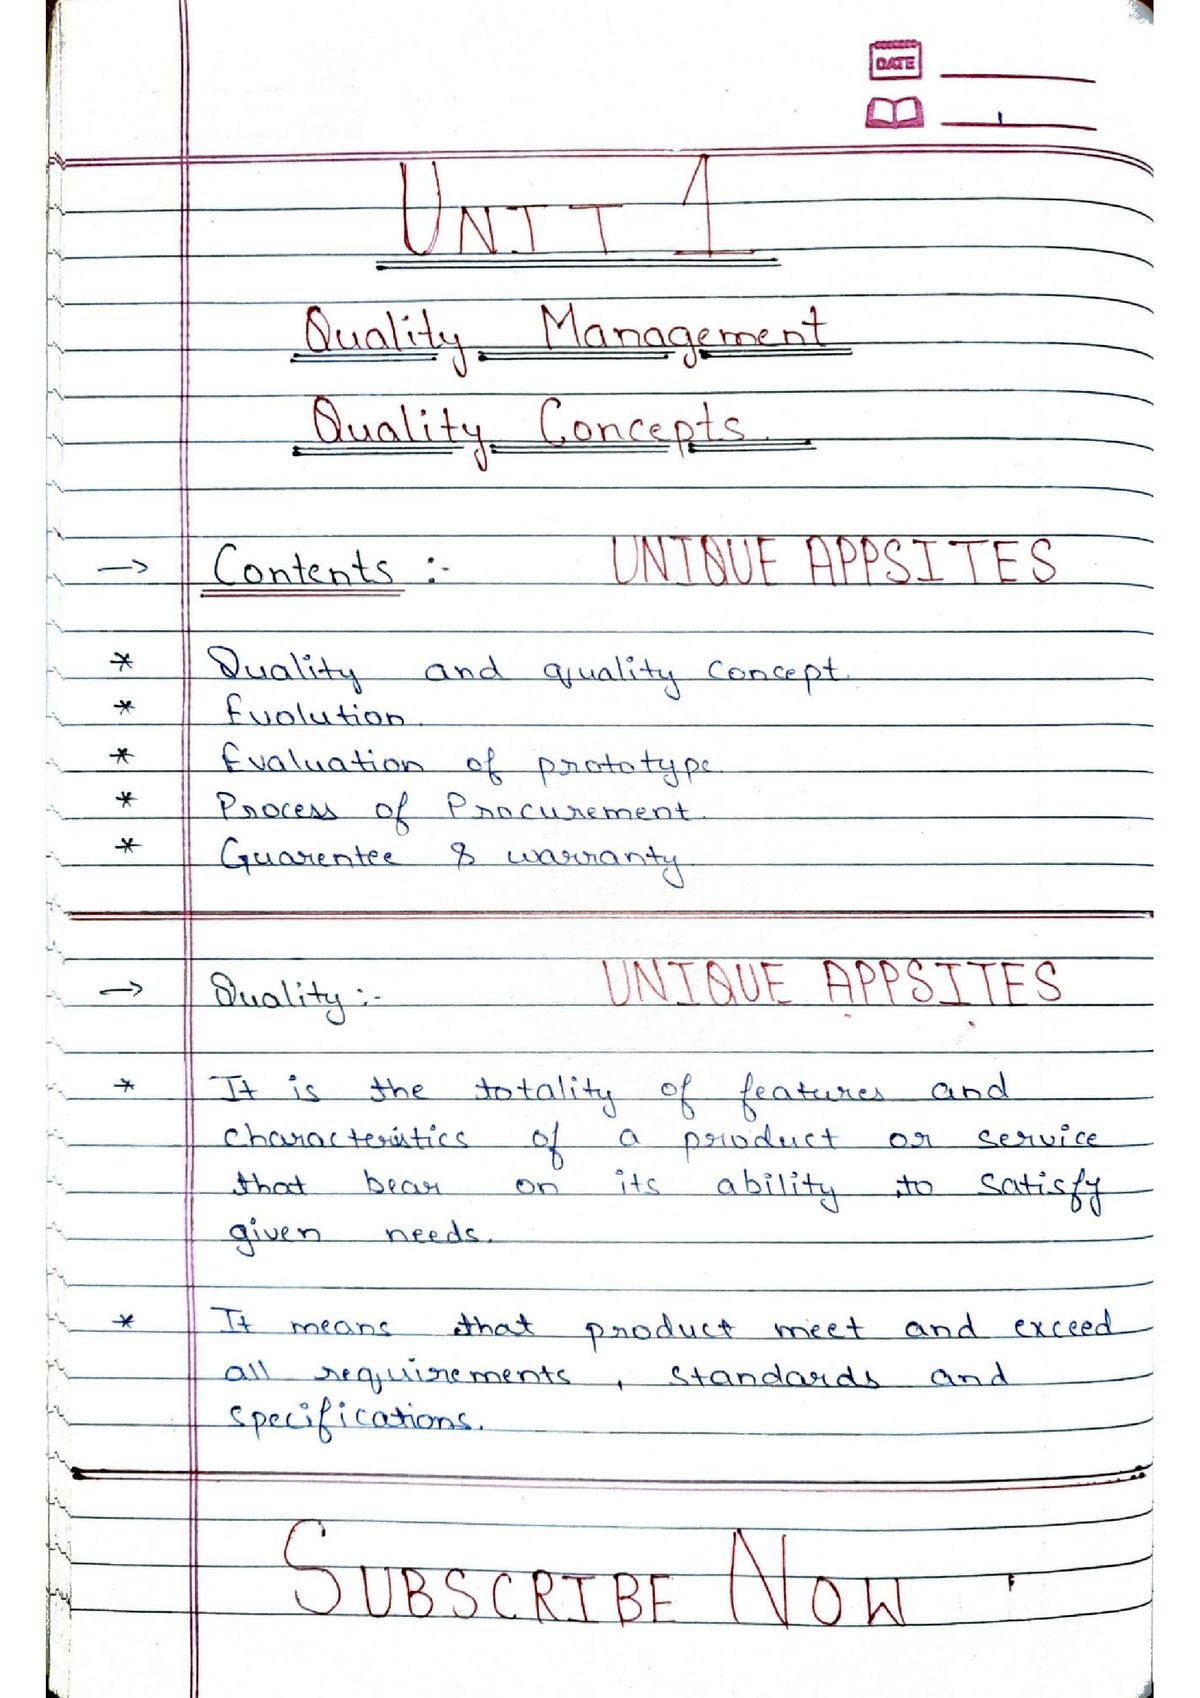 DATE
1
UNIT 1
Quality Management
Quality Concepts.
→ Contents :- UNIQUE APPSITES
* Quality and quality concept.
* Evolution.
* Evaluation of prototype.
* Process of Procurement.
* Guarentee & warranty.
→ Quality :- UNIQUE APPSITES
* It is the totality of features and
characteristics of a product or service
that bear on its ability to satisfy
given needs.
* It means that product meet and exceed
all requirements, standards and
specifications.
SUBSCRIBE NOW